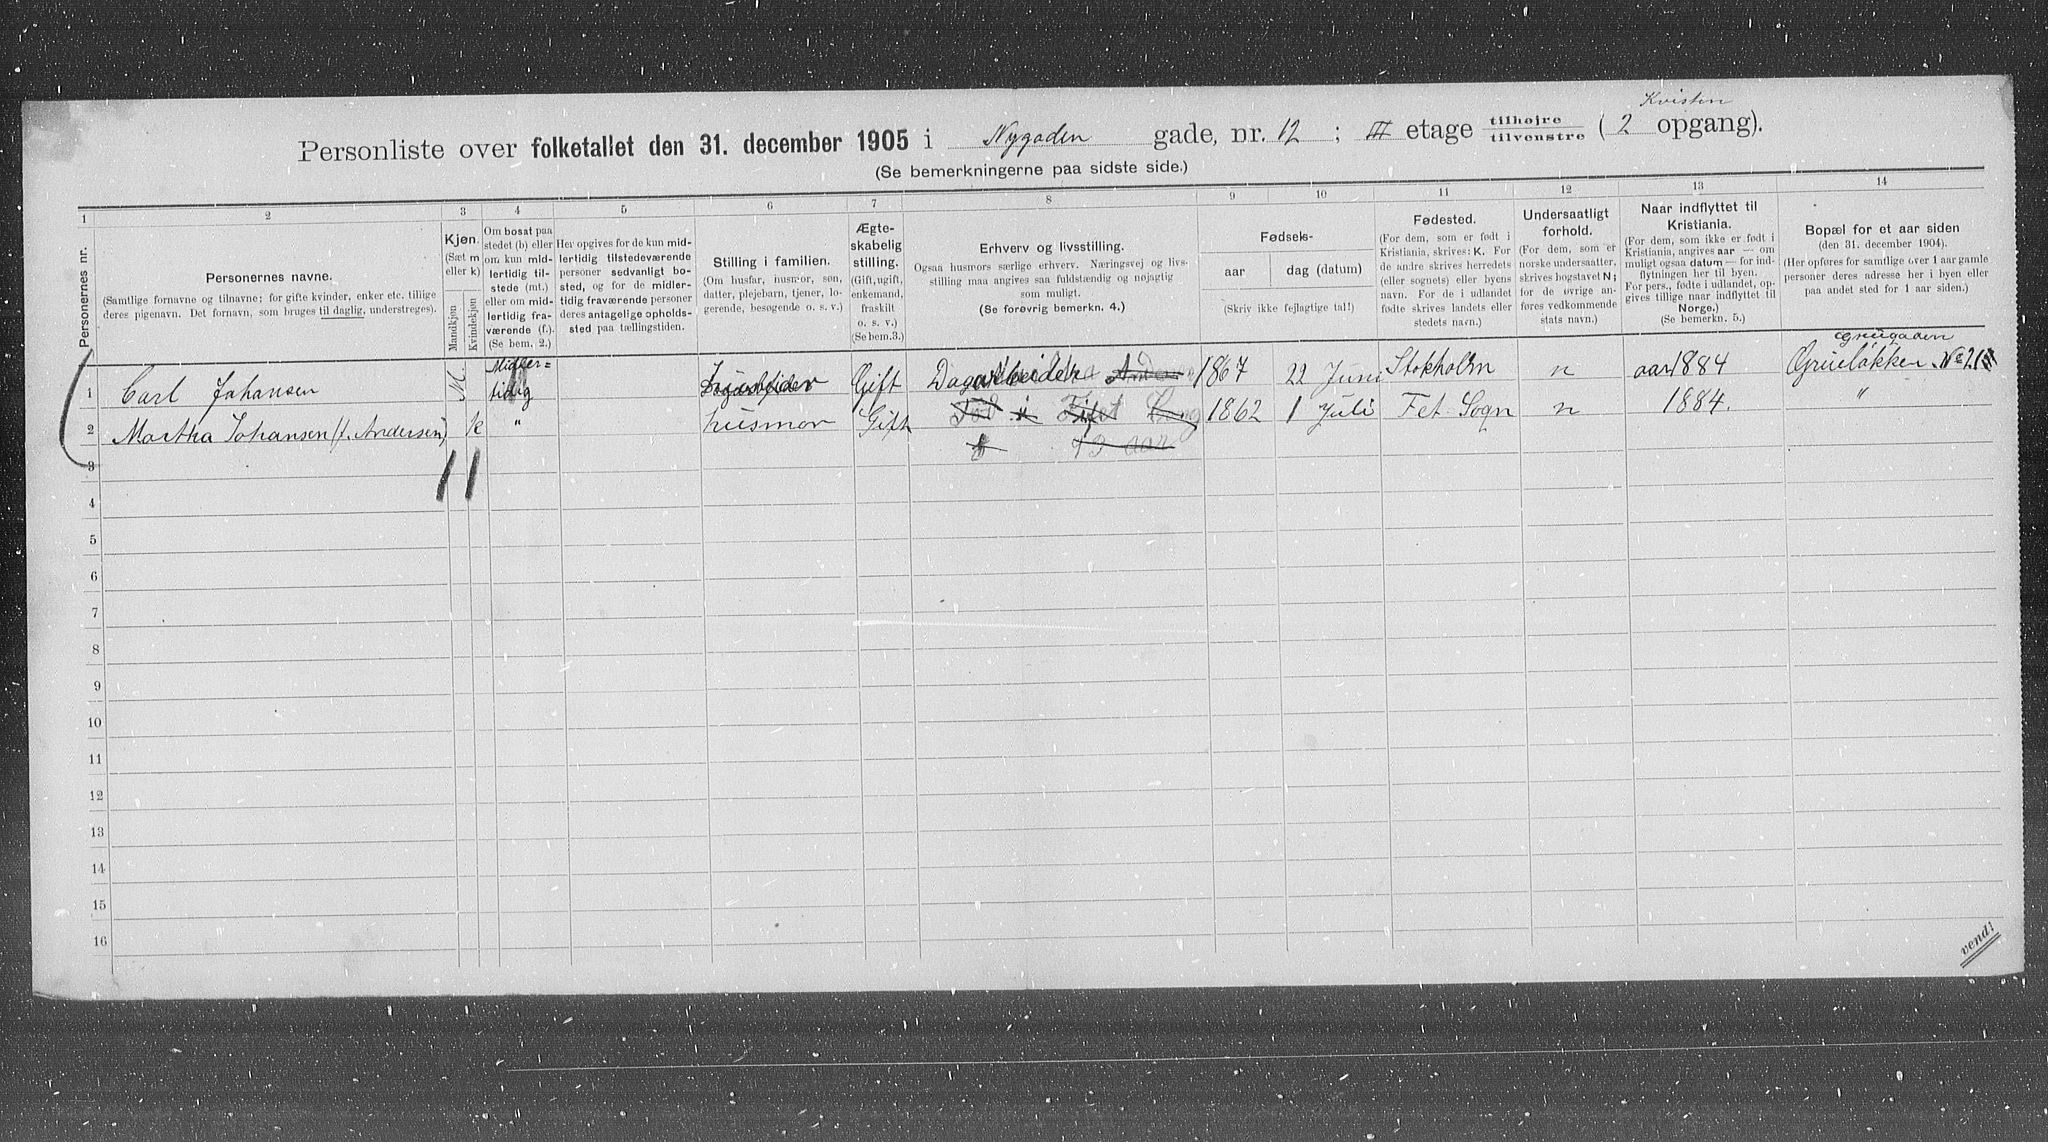 Kvisten
Personliste over folketallet den 31. december 1905 i Nygaden gade, nr. 12 ; III etage tilhøjre tilvenstre ( 2 opgang).
(Se bemerkningerne paa sidste side.)
1 2 3 4 5 6 7 8 9 10 11 12 13 14
Personernes nr.
Personernes navne.
(Samtlige fornavne og tilnavne; for gifte kvinder, enker etc. tillige
deres pigenavn. Det fornavn, som bruges til daglig, understreges).
Kjøn.
(Sæt m
eller k)
Mandkjøn
Kvindekjøn
Om bosat paa
stedet (b) eller
om kun mid-
lertidig til-
stede (mt.)
eller om mid-
lertidig fra-
værende (f.).
(Se bem. 2.)
Her opgives for de kun mid-
lertidig tilstedeværende
personer sedvanligt bo-
sted, og for de midler-
tidig fraværende personer
deres antagelige opholds-
sted paa tællingstiden.
Stilling i familien.
(Om husfar, husmor, søn,
datter, plejebarn, tjener, lo-
gerende, besøgende o. s. v.)
Ægte-
skabelig
stilling.
(Gift, ugift,
enkemand,
fraskilt
o. s. v.)
(Se bem. 3.)
Erhverv og livsstilling.
Ogsaa husmors særlige erhverv. Næringsvej og livs-
stilling maa angives saa fuldstændig og nøjagtig
som muligt.
(Se forøvrig bemerkn. 4.)
Fødsels-
aar
dag (datum)
(Skriv ikke fejlagtige tal!)
Fødested.
(For dem, som er født i
Kristiania, skrives: K. For
de andre skrives herredets
(eller sognets) eller byens
navn. For de i udlandet
fødte skrives landets eller
stedets navn.)
Undersaatligt
forhold.
(For dem, som er
norske undersaatter,
skrives bogstavet N;
for de øvrige an-
føres vedkommende
stats navn.)
Naar indflyttet til
Kristiania.
(For dem, som ikke er født i
Kristiania, angives aar — om
muligt ogsaa datum — for ind-
flytningen her til byen.
For pers., fødte i udlandet, op-
gives tillige naar indflyttet til
Norge.)
(Se bemerkn. 5.)
Bopæl for et aar siden
(den 31. december 1904).
(Her opføres for samtlige over 1 aar gamle
personer deres adresse her i byen eller
paa andet sted for 1 aar siden.)
Gruegaden
1 Carl Johansen M. Midler-
tidig Gift Dagarbeider 1867 22 Juni Stokholm n aar 1884 Grueløkken No 21
2 Martha Johansen (f. Andersen) k " husmor Gift Fød i Fet Sogn 1862 1 Juli Fet Sogn n 1884. "
3
4
5
6
7
8
9
10
11
12
13
14
15
16
vend!